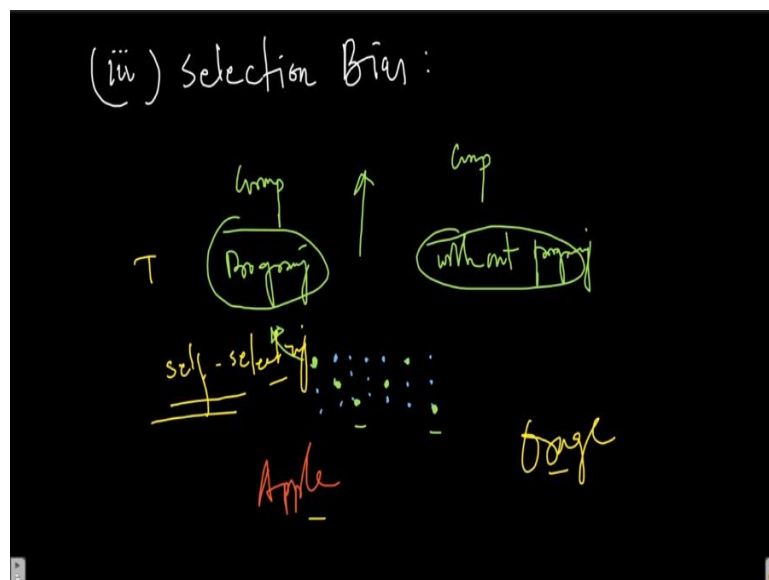 (iii) Selection Bias :
Group
Group
T
without
self-selecting
Apple
Orange